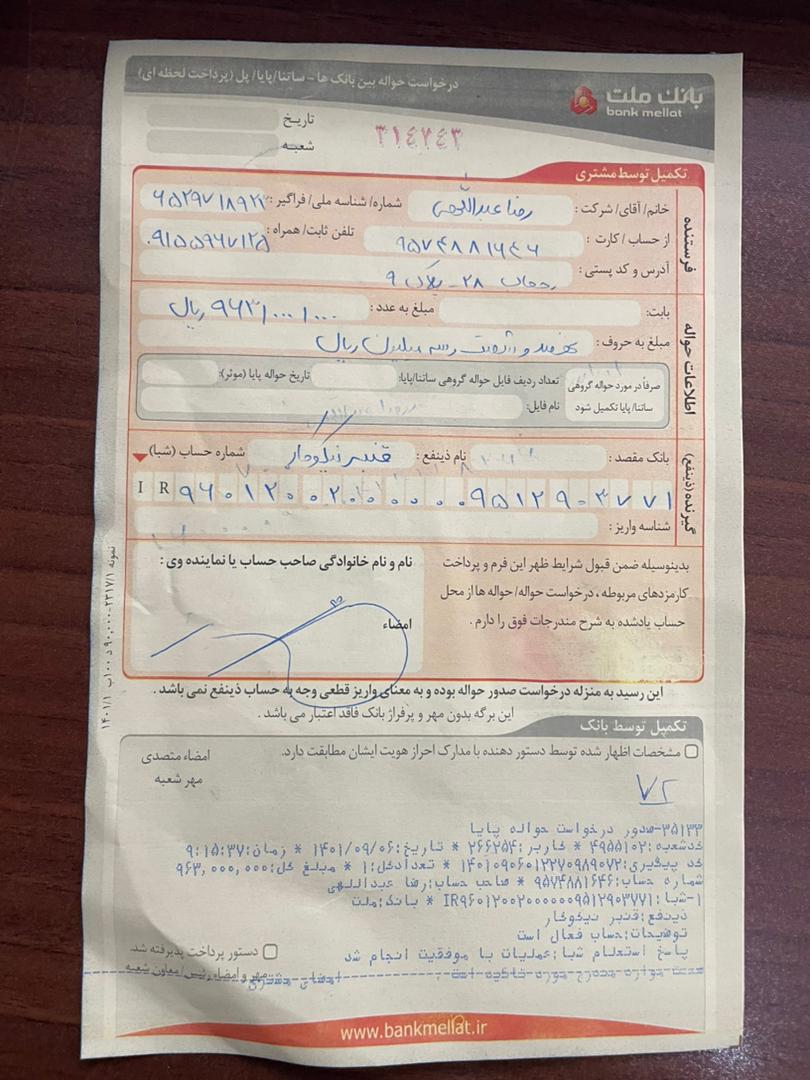 درخواست حواله بین بانک ها - ساتنا/پایا/ پل (پرداخت لحظه ای)
بانک ملت
bank mellat
تاریخ
شعبه
۳۱٤۷٤۳
تکمیل توسط مشتری
فرستنده
خانم/ آقای/ شرکت: رضا عبداللهی شماره/ شناسه ملی/ فراگیر:
از حساب / کارت : ۹۵۷۴۸۸۱۶۴۶ تلفن ثابت/ همراه: ۰۹۱۵۵۹۶۷۱۲۵
آدرس و کد پستی: ۲۸ - پلاک ۹
اطلاعات حواله
بابت: مبلغ به عدد: ۹۶۳/۰۰۰/۰۰۰ ریال
مبلغ به حروف: نهصد و شصت و سه میلیون ریال
صرفاً در مورد حواله گروهی ساتنا/ پایا تکمیل شود
تعداد ردیف فایل حواله گروهی ساتنا/پایا: تاریخ حواله پایا (موثر):
نام فایل:
گیرنده (ذینفع)
بانک مقصد: نام ذینفع: قنبر نیکوکار شماره حساب (شبا)
I R ۹۶۰۱۲۰۰۲۰۰۰۰۰۰۹۵۱۲۹۰۳۷۷۱
شناسه واریز:
بدینوسیله ضمن قبول شرایط ظهر این فرم و پرداخت
کارمزدهای مربوطه، درخواست حواله/ حواله ها از محل
حساب یادشده به شرح مندرجات فوق را دارم.
نام و نام خانوادگی صاحب حساب یا نماینده وی :
امضاء
این رسید به منزله درخواست صدور حواله بوده و به معنای واریز قطعی وجه به حساب ذینفع نمی باشد .
این برگه بدون مهر و پرفراژ بانک فاقد اعتبار می باشد .
تکمیل توسط بانک
مشخصات اظهار شده توسط دستور دهنده با مدارک احراز هویت ایشان مطابقت دارد.
امضاء متصدی
مهر شعبه
۷۲
۳۵۱۳۳-صدور درخواست حواله پایا
کدشعبه:۴۹۵۵۱۰۲ * کاربر:۲۶۶۲۵۴ * تاریخ:۱۴۰۱/۰۹/۰۶ * زمان:۹:۱۵:۳۷
کد پیگیری:۱۴۰۱۰۹۰۶۰۱۲۲۷۰۹۸۹۰۷۲ * تعدادکل:۱ * مبلغ کل:۹۶۳,۰۰۰,۰۰۰
شماره حساب:۹۵۷۴۸۸۱۶۴۶ * صاحب حساب:رضا عبداللهی
۱-شبا:IR۹۶۰۱۲۰۰۲۰۰۰۰۰۰۹۵۱۲۹۰۳۷۷۱ * بانک:ملت
ذینفع:قنبر نیکوکار
توضیحات:حساب فعال است
پاسخ استعلام شبا:عملیات با موفقیت انجام شد
دستور پرداخت پذیرفته شد.
مهر و امضاء رئیس/ معاون شعبه
امضای مشتری
www.bankmellat.ir
نمونه ۲۳۱۷/۱-۹۰,۰۰۰ د ۱۰۰ ب ۱۴۰۱/۱